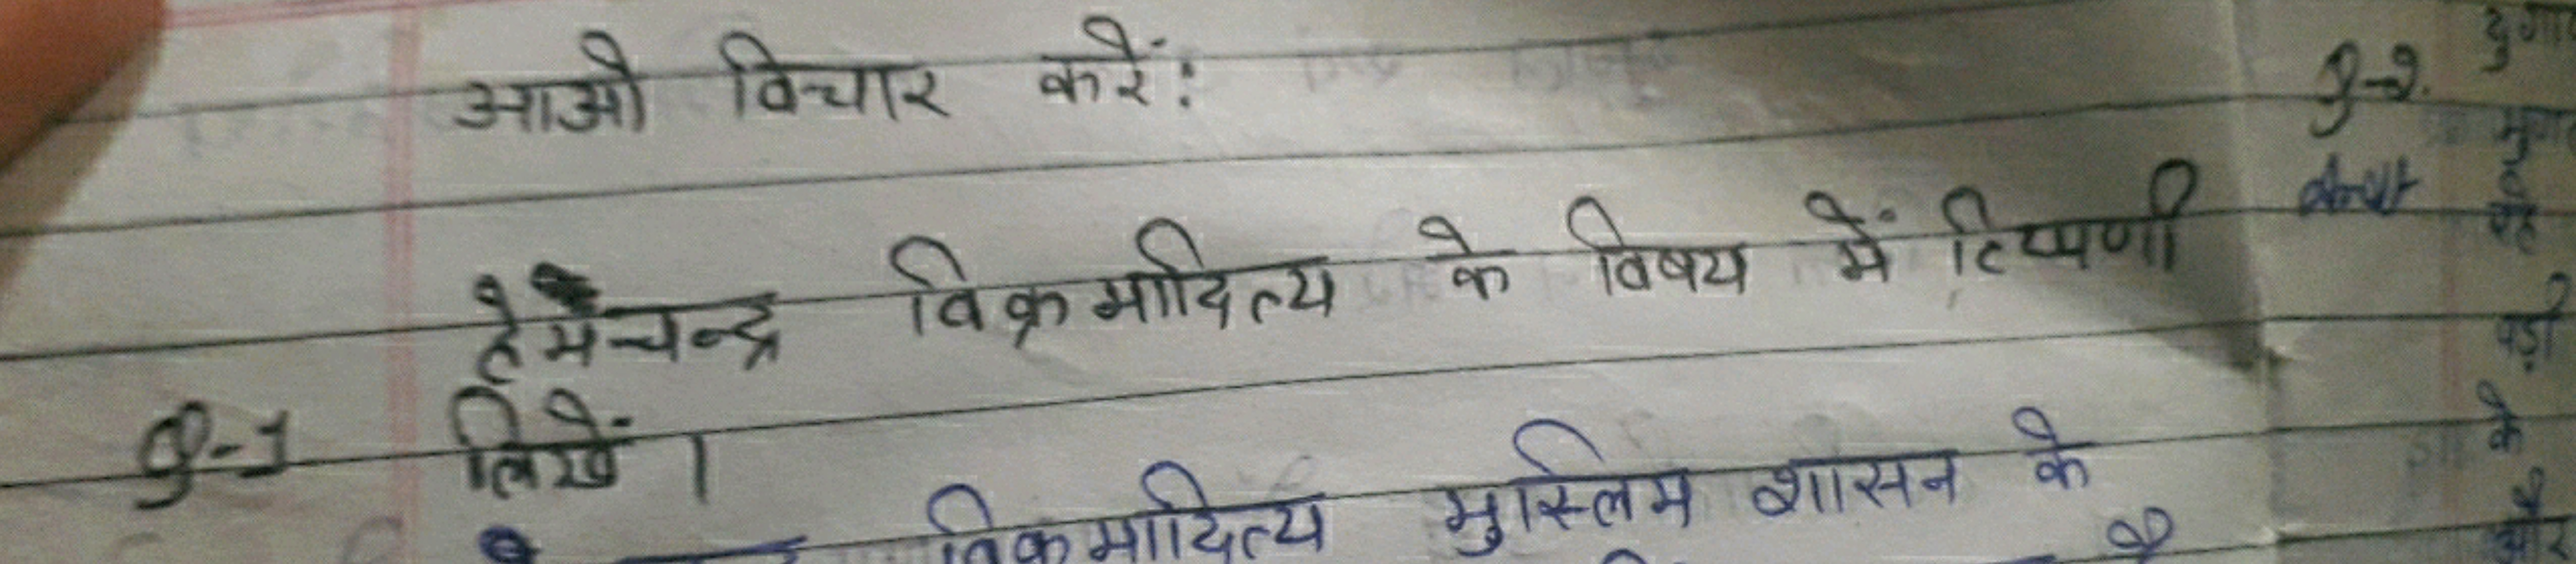 आओ विचार करें:
हेमचन्द्र विक्रमादित्य के विषय में टिप्पणी
Q-1 लिखें।
विक्रमादित्य मुस्लिम शासन के
Q-2.
के
और